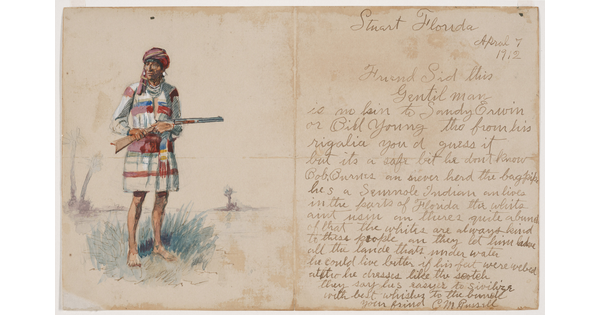 Stuart Florida
April 7
1912
Friend Sid this
Gentil man
is no kin to Sandy Erwin
or Bill Young tho from his
rigalia you d guess it
but its a safe bit he dont know
Bob Burns an never herd the bag pip
hes a Semnole Indian an lives
in the parts of Florida the whits
aint usin an theres quite a bunch
of that the whites are always kind
to these people an they let him have
all the lande thats under water
he could live better if his feet were webed
he dresses like the scotch
they say hes easier to sivilize
with best whishes to the bunch
your frind C M Russell